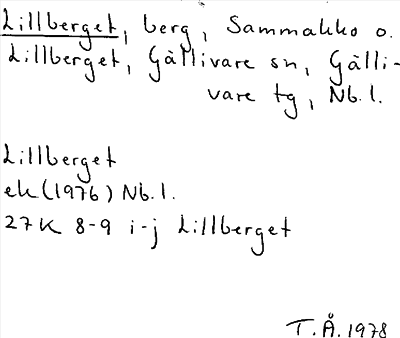 Lillberget, berg, Sammakko o.
Lillberget, Gällivare sn, Gälli-
vare tg, Nb.l.
Lillberget
ek (1976) Nb.l.
27K 8-9 i-j Lillberget
T.Å. 1978